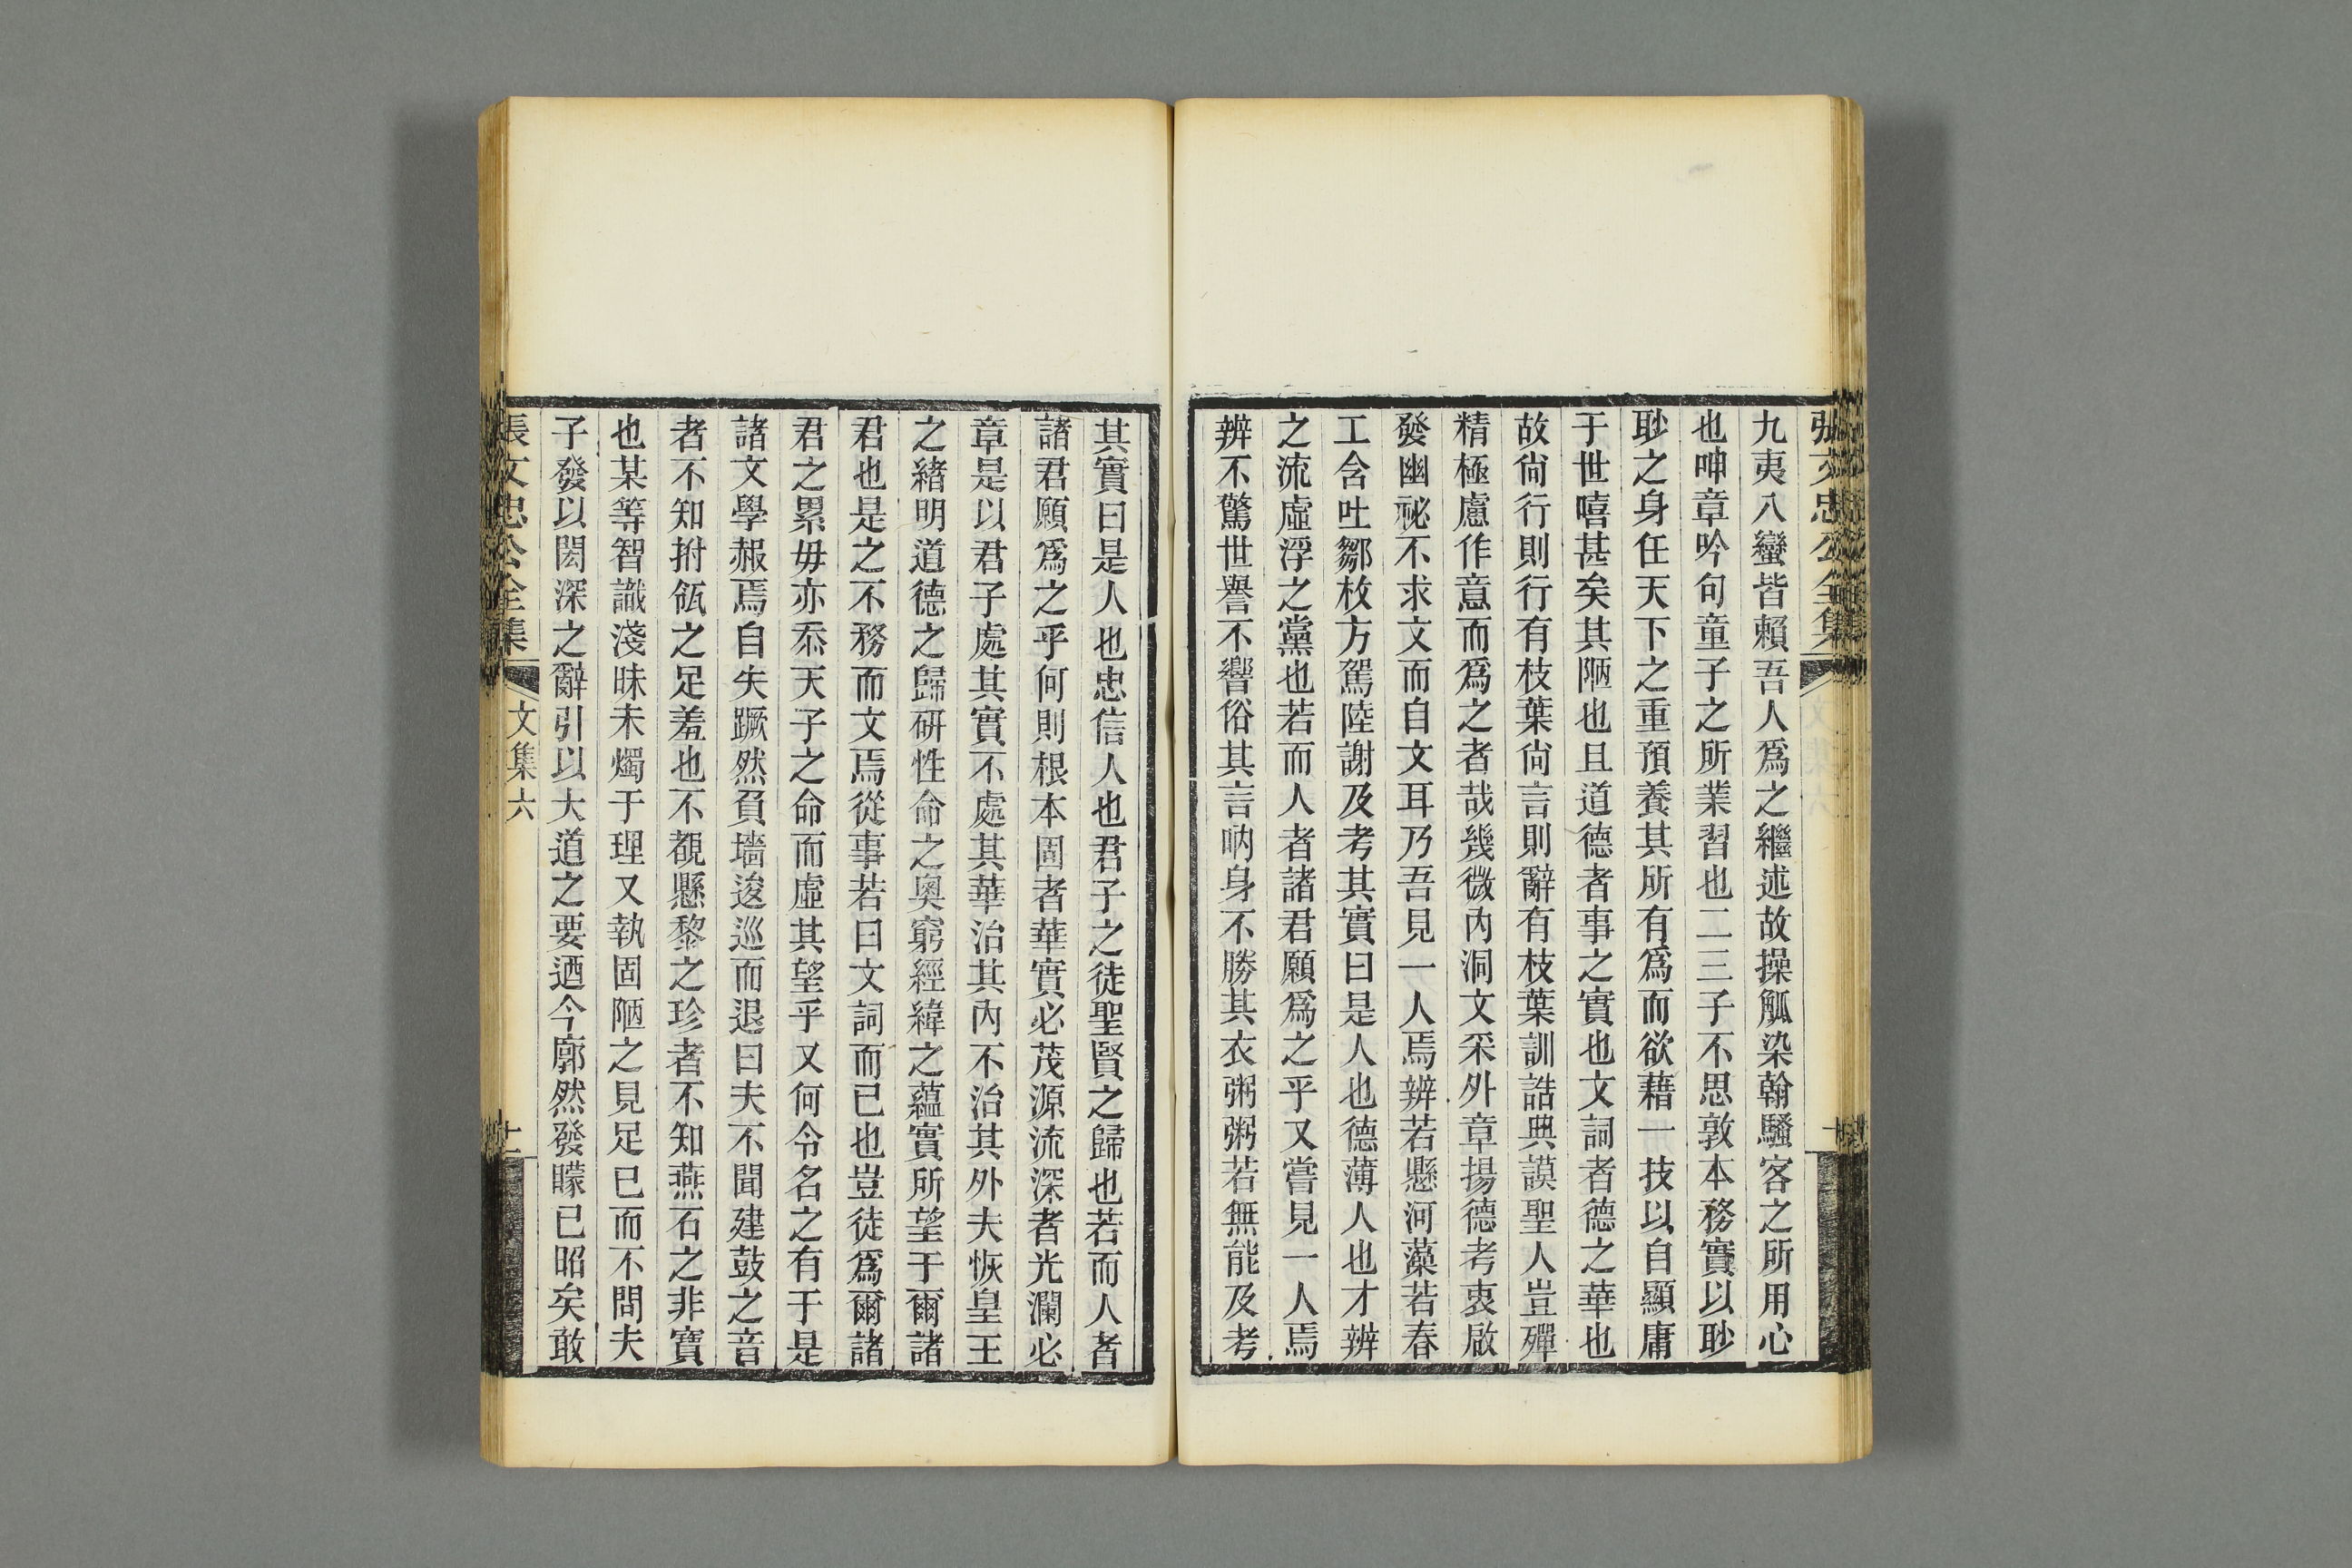 張文忠公全集
九夷八蠻皆賴吾人爲之繼述故操觚染翰騷客之所用心
也呻章吟句童子之所業習也二三子不思敦本務實以眇
眇之身任天下之重預養其所有爲而欲藉一技以自顯庸
于世嘻甚矣其陋也且道德者事之實也文詞者德之華也
故尙行則行有枝葉尙言則辭有枝葉訓誥典謨聖人豈殫
精極慮作意而爲之者哉幾微內洞文采外章揚德考衷啟
發幽祕不求文而自文耳乃吾見一人焉辨若懸河藻若春
工含吐鄒枚方駕陸謝及考其實曰是人也德薄人也才辨
之流虛浮之黨也若而人者諸君願爲之乎又嘗見一人焉
辨不驚世譽不響俗其言吶身不勝其衣粥粥若無能及考
其實曰是人也忠信人也君子之徒聖賢之歸也若而人者
諸君願爲之乎何則根本固者華實必茂源流深者光瀾必
章是以君子處其實不處其華治其內不治其外夫恢皇王
之緒明道德之歸研性命之奧窮經緯之蘊實所望于爾諸
君也是之不務而文焉從事若曰文詞而已也豈徒爲爾諸
君之累毋亦忝天子之命而虛其望乎又何令名之有于是
諸文學赧焉自失蹶然負墻逡巡而退曰夫不聞建鼓之音
者不知拊瓴之足羞也不覩懸黎之珍者不知燕石之非寶
也某等智識淺昧未燭于理又執固陋之見足已而不問夫
子發以閎深之辭引以大道之要迺今廓然發矇已昭矣敢
張文忠公全集 文集六 十二